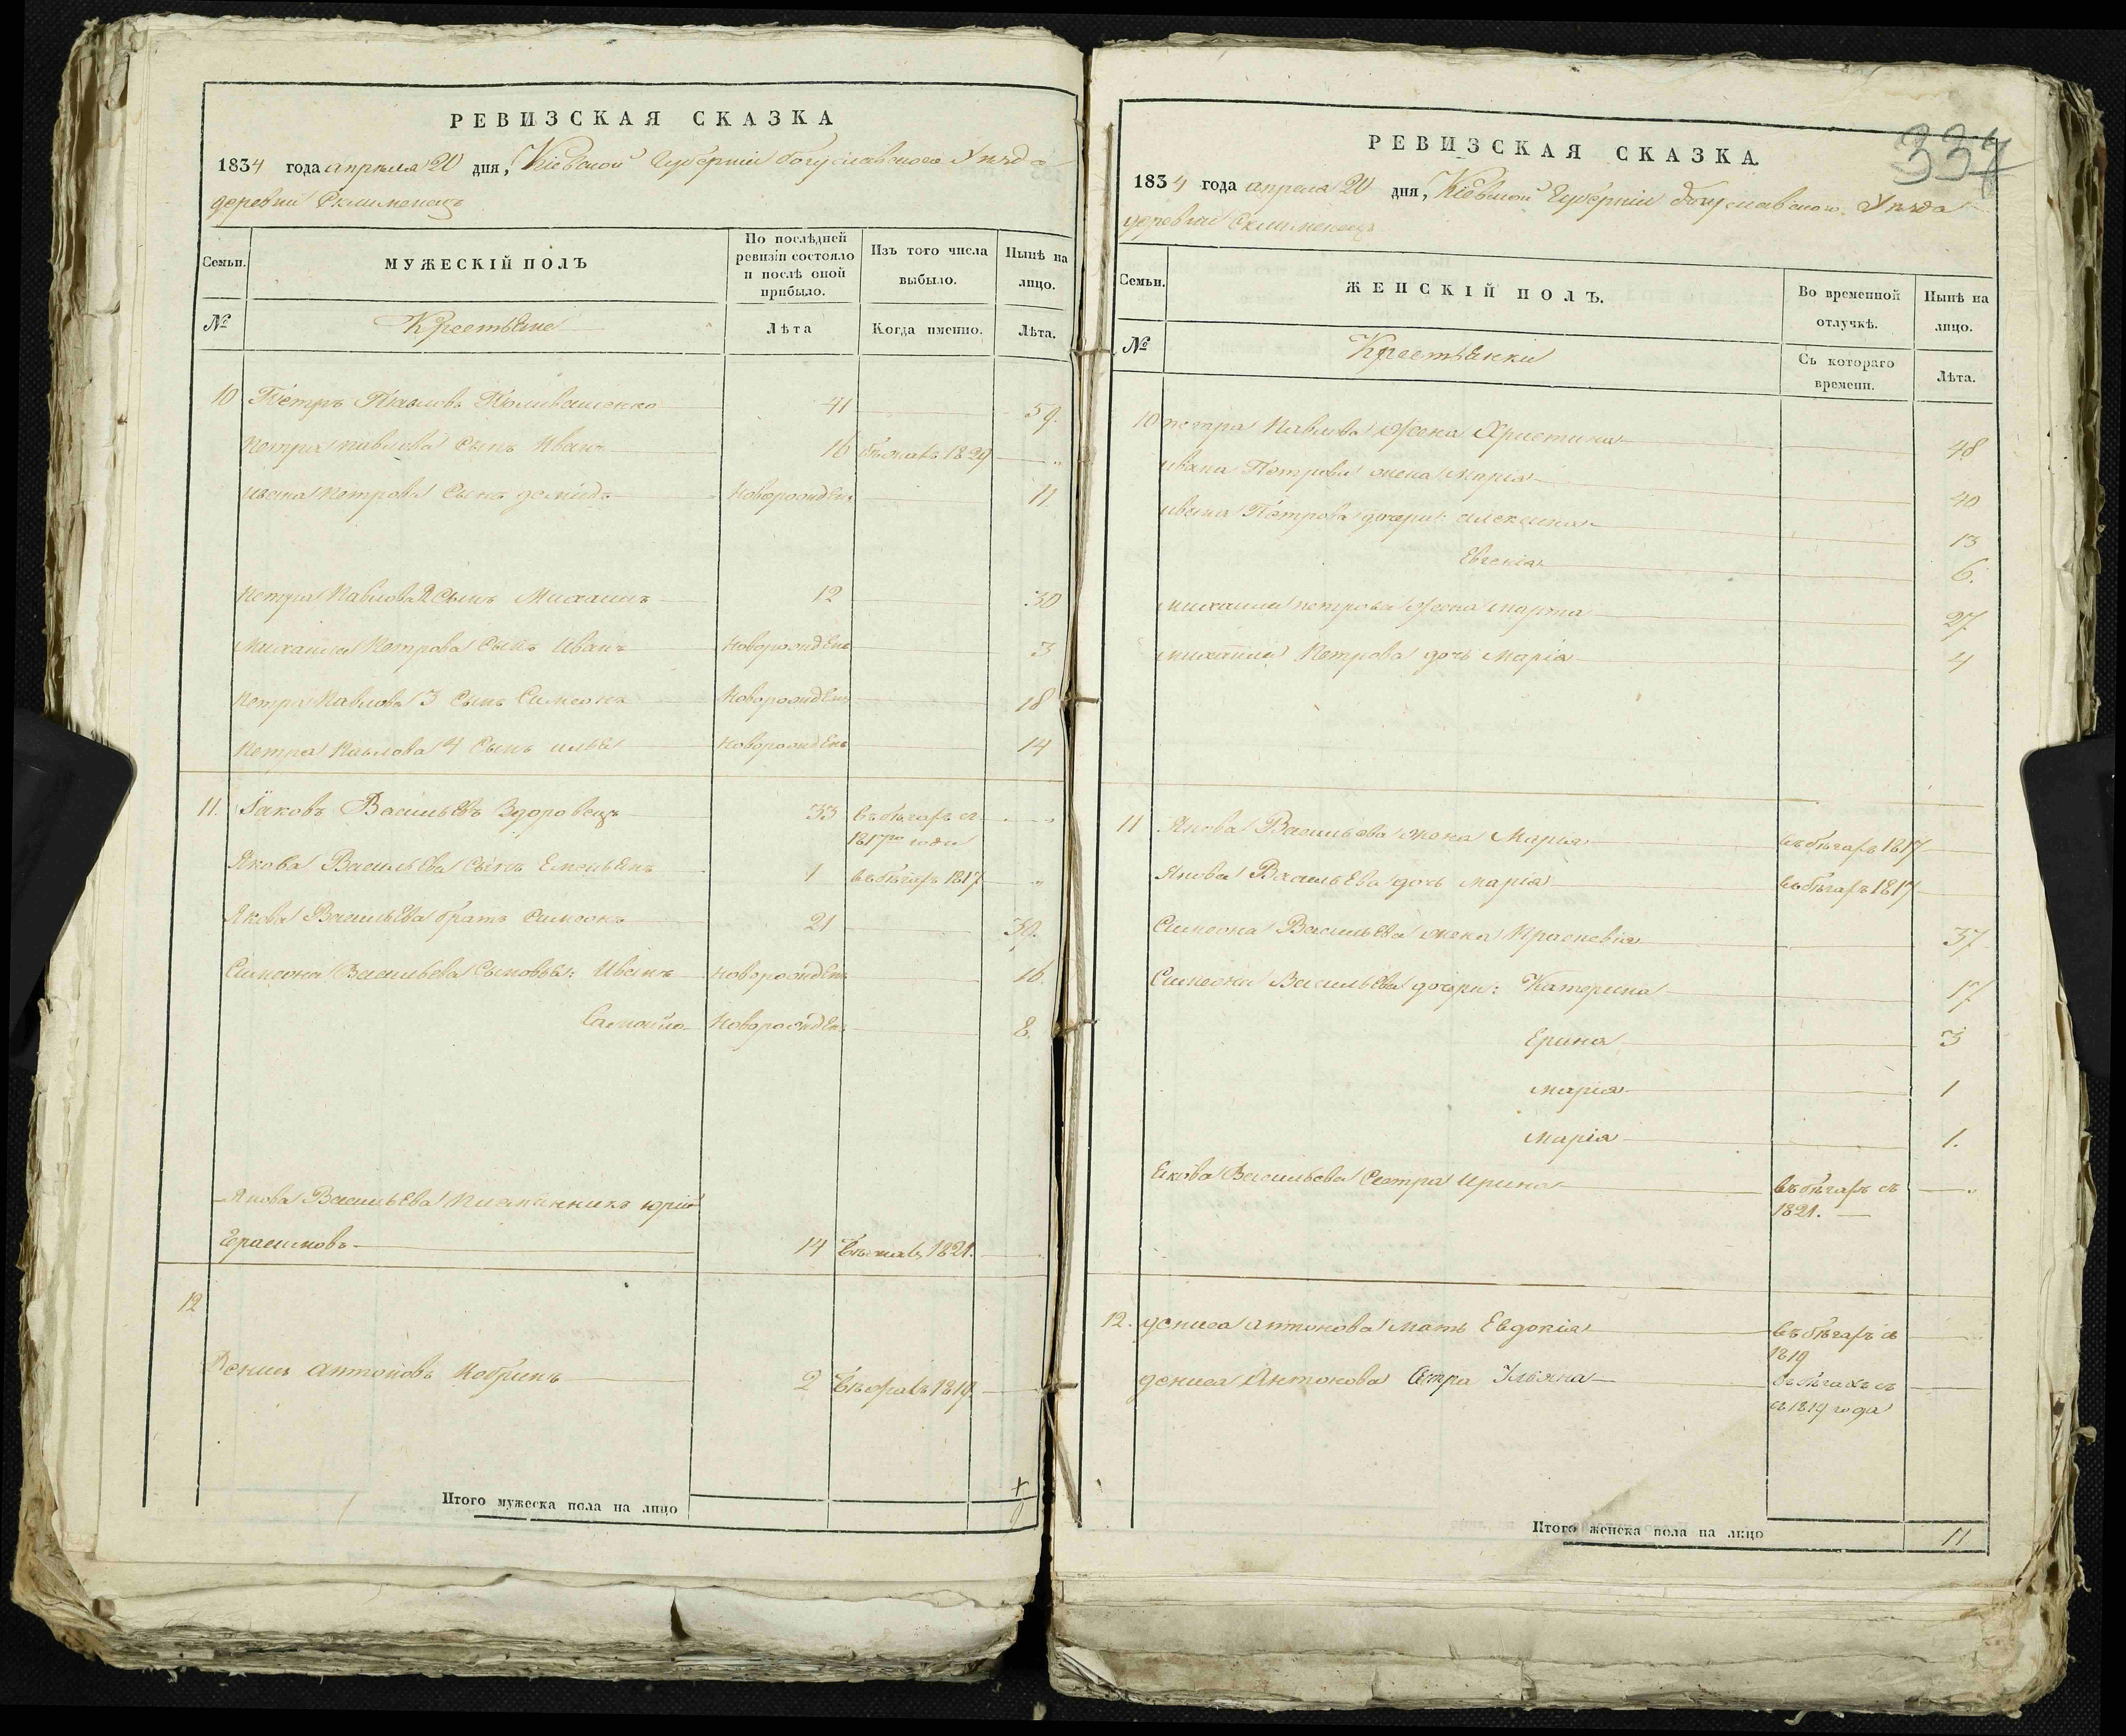 РЕВИЗСКАЯ СКАЗКА
1834 года апреля 20 дня, Кіевской Губерніи Богуславского Уѣзда
деревни Склименецъ
Семьи. МУЖЕСКІЙ ПОЛЪ По послѣдней ревизіи состояло и послѣ оной прибыло. Изъ того числа выбыло. Нынѣ на лицо.
№ Крестьяне Лѣта Когда именно. Лѣта.
10 Петръ Павловъ 41 59.
Петра Павлова сынъ Иванъ 16 бѣжавъ 1829
Ивана Петрова сынъ Демидъ новорожденъ 11
Петра Павлова 2 сынъ Михаилъ 12 30
Михаила Петрова сынъ Иванъ новорожденъ 3
Петра Павлова 3 сынъ Симеонъ новорожденъ 18
Петра Павлова 4 сынъ Илья новорожденъ 14
11. Іаковъ Васильевъ Здоровецъ 33 въ бѣгахъ съ
1817го года
Якова Васильева сынъ Емельянъ 1 въ бѣгахъ 1817
Якова Васильева братъ Симеонъ 21 39.
Симеона Васильева сыновья: Иванъ новорожденъ 16.
Самойло новорожденъ 8.
Якова Васильева племянникъ Юрій
Герасимовъ 14 бѣжавъ 1821.
12
Денисъ Антоновъ Кобринъ 2 бѣжавъ 1819.
Итого мужеска пола на лицо 9
337
РЕВИЗСКАЯ СКАЗКА.
1834 года апреля 20 дня, Кіевской Губерніи Богуславского Уѣзда
деревни Склименецъ
Семьи. ЖЕНСКІЙ ПОЛЪ. Во временной отлучкѣ. Нынѣ на лицо.
№ Крестьянки Съ котораго времени. Лѣта.
10 Петра Павлова жена Христина 48
Ивана Петрова жена Марія 40
Ивана Петрова дочери: 13
Евгенія 6.
Михаила Петрова жена Марта 27
Михаила Петрова дочь Марія 4
11 Якова Васильева жена Марія въ бѣгахъ 1817
Якова Васильева дочь Марія въ бѣгахъ 1817
Симеона Васильева жена Прасковія 37
Симеона Васильева дочери: Катерина 17
Ерина 3
Марія 1
Марія 1.
Якова Васильева сестра Ирина въ бѣгахъ съ
1821.
12. Дениса Антонова мать Евдокія въ бѣгахъ съ
1819
Дениса Антонова сестра Ульяна въ бѣгахъ съ
съ 1819 года
Итого женска пола на лицо 11